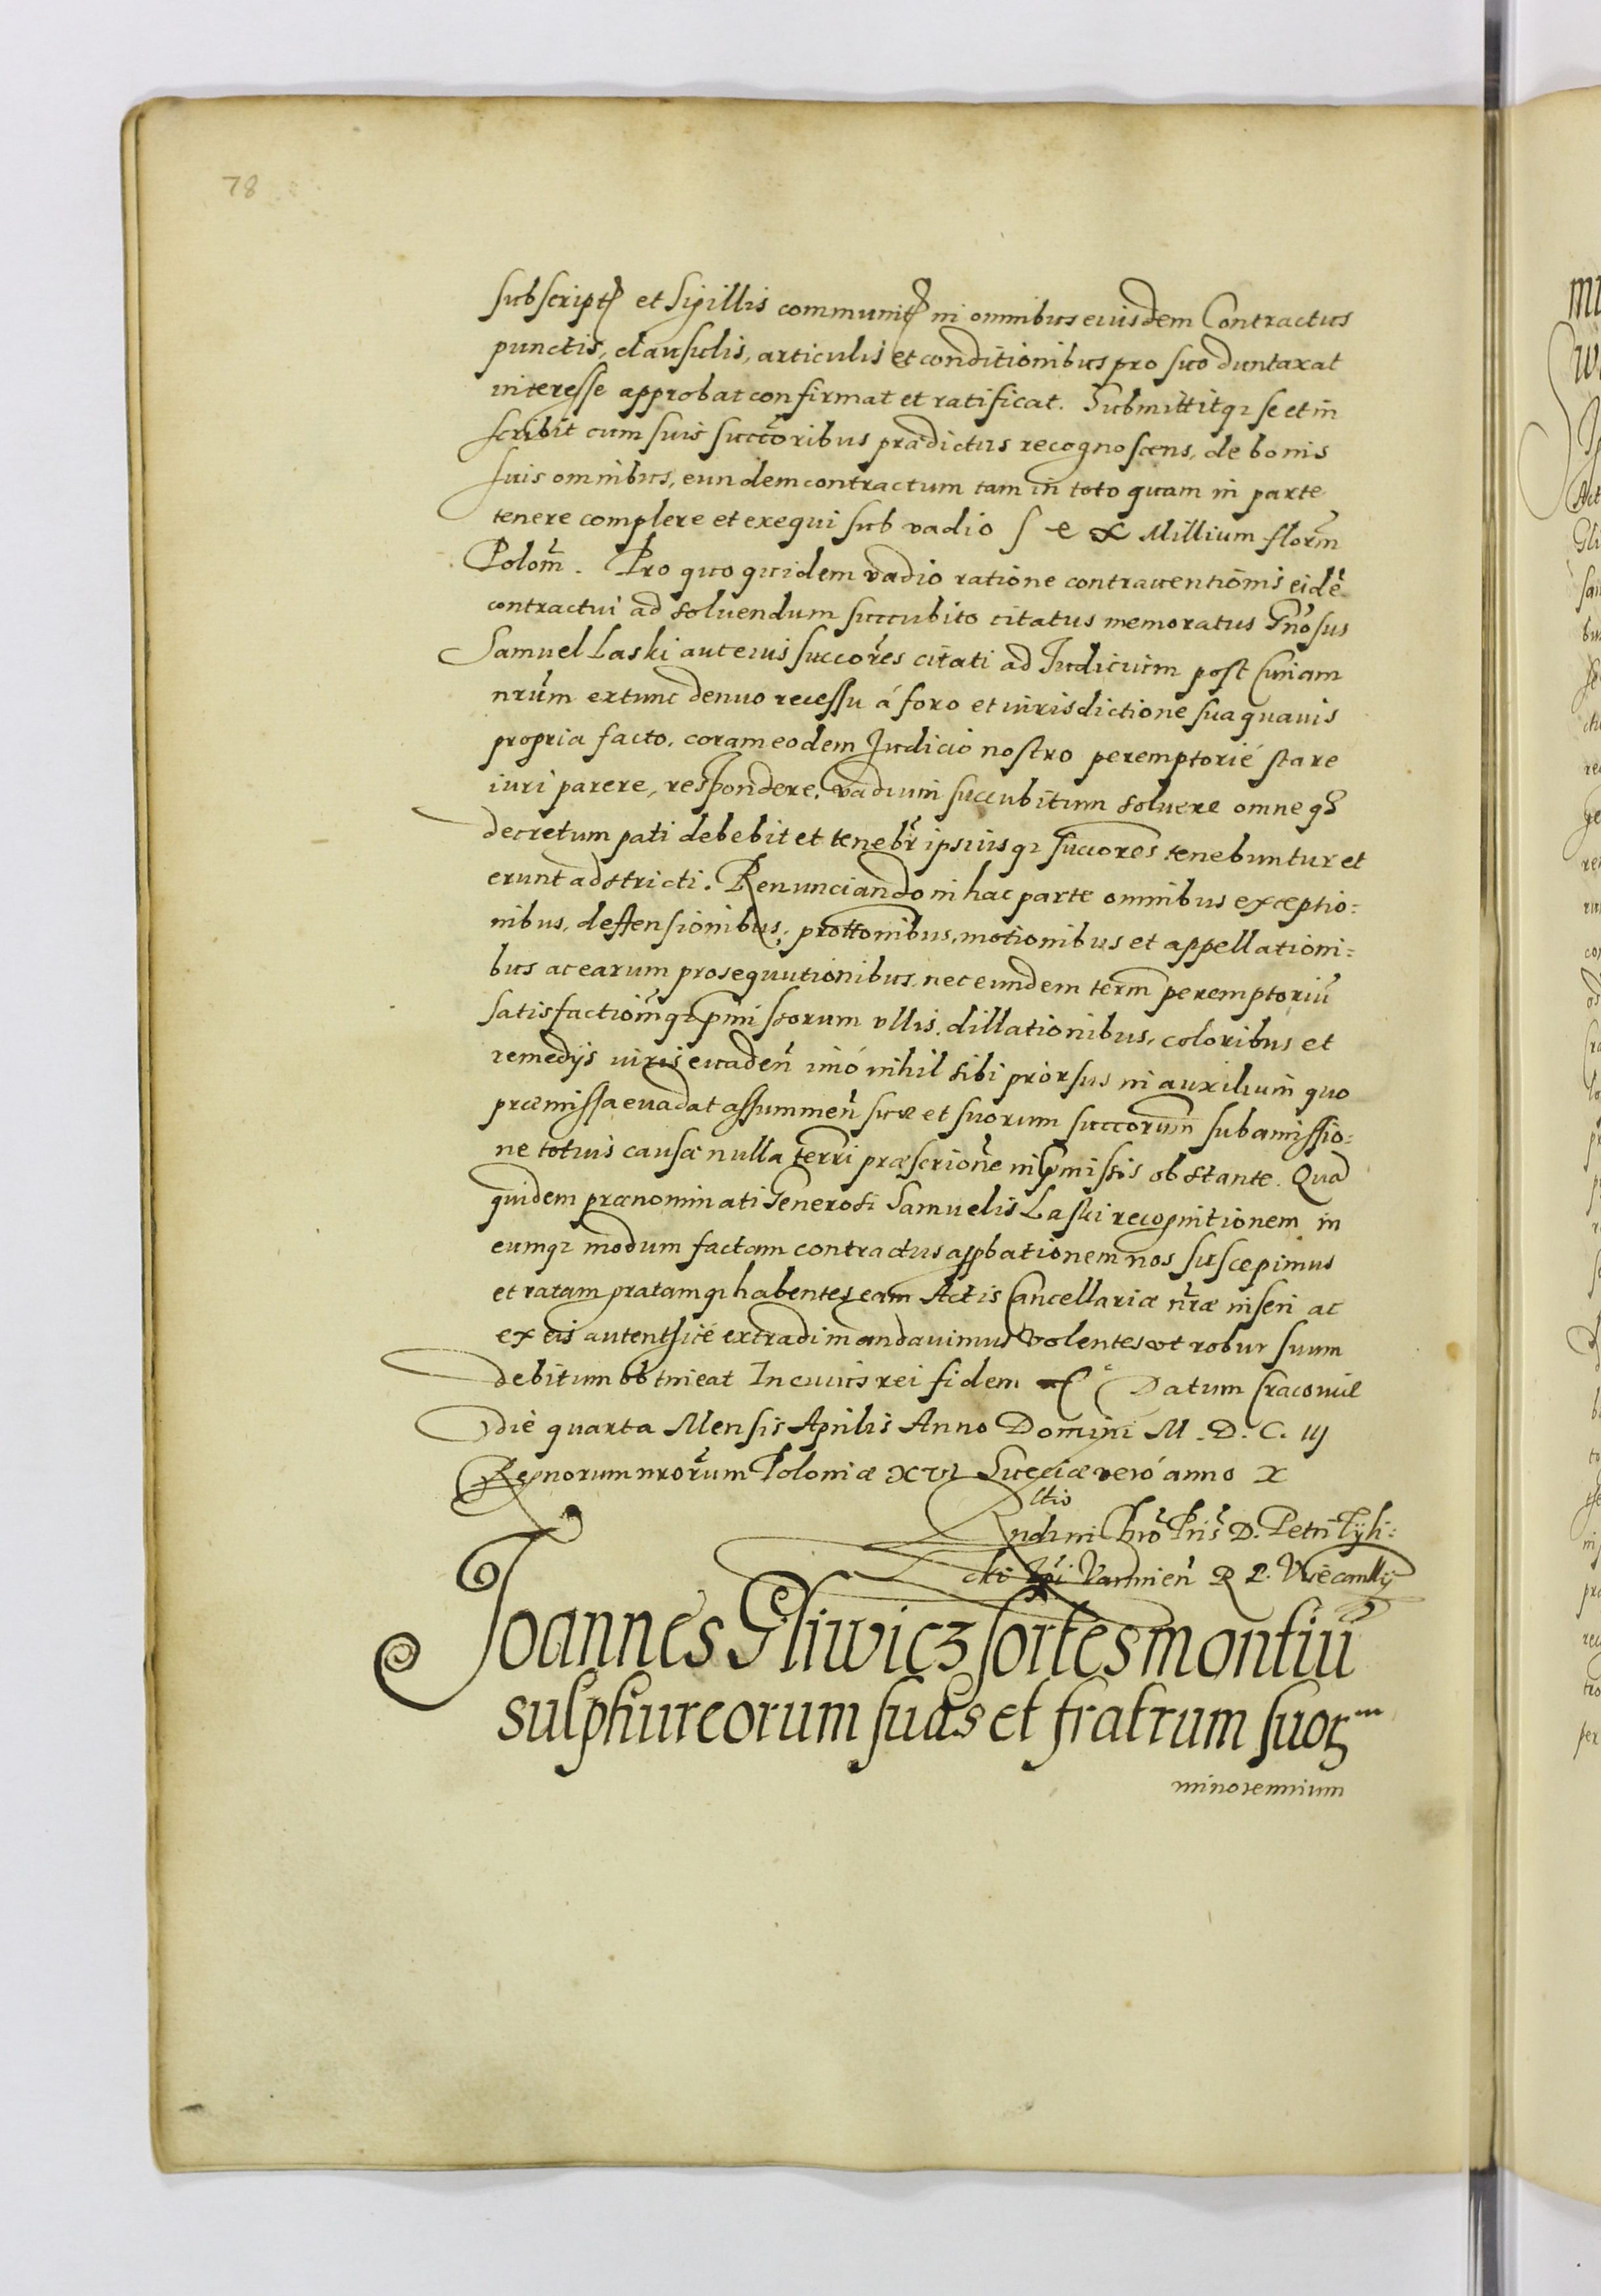 78
subscript et Sigillis communit in omnibus eiusdem Contractus
punctis, clausulis, articulis et conditionibus pro suo duntaxat
interesse approbat confirmat et ratificat. Submittitq se et in
scribit cum suis succoribus prædictus recognoscens, de bonis
suis omnibus, eundem contractum tam in toto quam in parte
tenere complere et exequi sub vadio sex Millium florm
Polom. Pro quo quidem vadio ratione contrauentionis eidē
contractui ad soluendum succubito citatus memoratus Gnosus
Samuel Laski aut eius succores citati ad Iudicium post Curiam
nrum extunc denuo recessu á foro et iurisdictione sua quauis
propria facto, coram eodem Judicio nostro peremptorié stare
iuri parere, respondere, vadium succubitum soluere omneq
decretum pati debebit et tenebr ipsiusq succores tenebuntur et
erunt adstricti. Renunciando in hac parte omnibus exceptio=
nibus, deffensionibus, prottonibus, motionibus et appellationi=
bus ac earum prosequutionibus, nec eundem term peremptoriū
satisfactiomq pmissorum vllis, dillationibus, coloribus et
remedijs iuris euaden imó nihil sibi prorsus in auxilium quo
præmissa euadat assummen suæ et suorum succorum sub amissio=
ne totius causæ nulla terri præscrione in pmissis obstante. Quā
quidem prænominati Generosi Samuelis Laski recognitionem in
eumq modum factam contractus appbationem nos suscepimus
et ratam gratamq habentes eam Actis Cancellariæ nræ inseri ac
ex eis autenthicé extradi mandauimus volentes vt robur suum
debitum obtineat In cuius rei fidem Datum Cracouiæ
die quarta Mensis Aprilis Anno Domini M. D. C. iij
Regnorum nrorum Poloniæ xvi Sueciæ veró anno x
ctio
Rndi in Chro Pris D. Petri Tyli=
cki Varmien R P. Vicecanllij
Joannes Gliwicz sortes montiū
sulphureorum suas et fratrum suor
minorennium